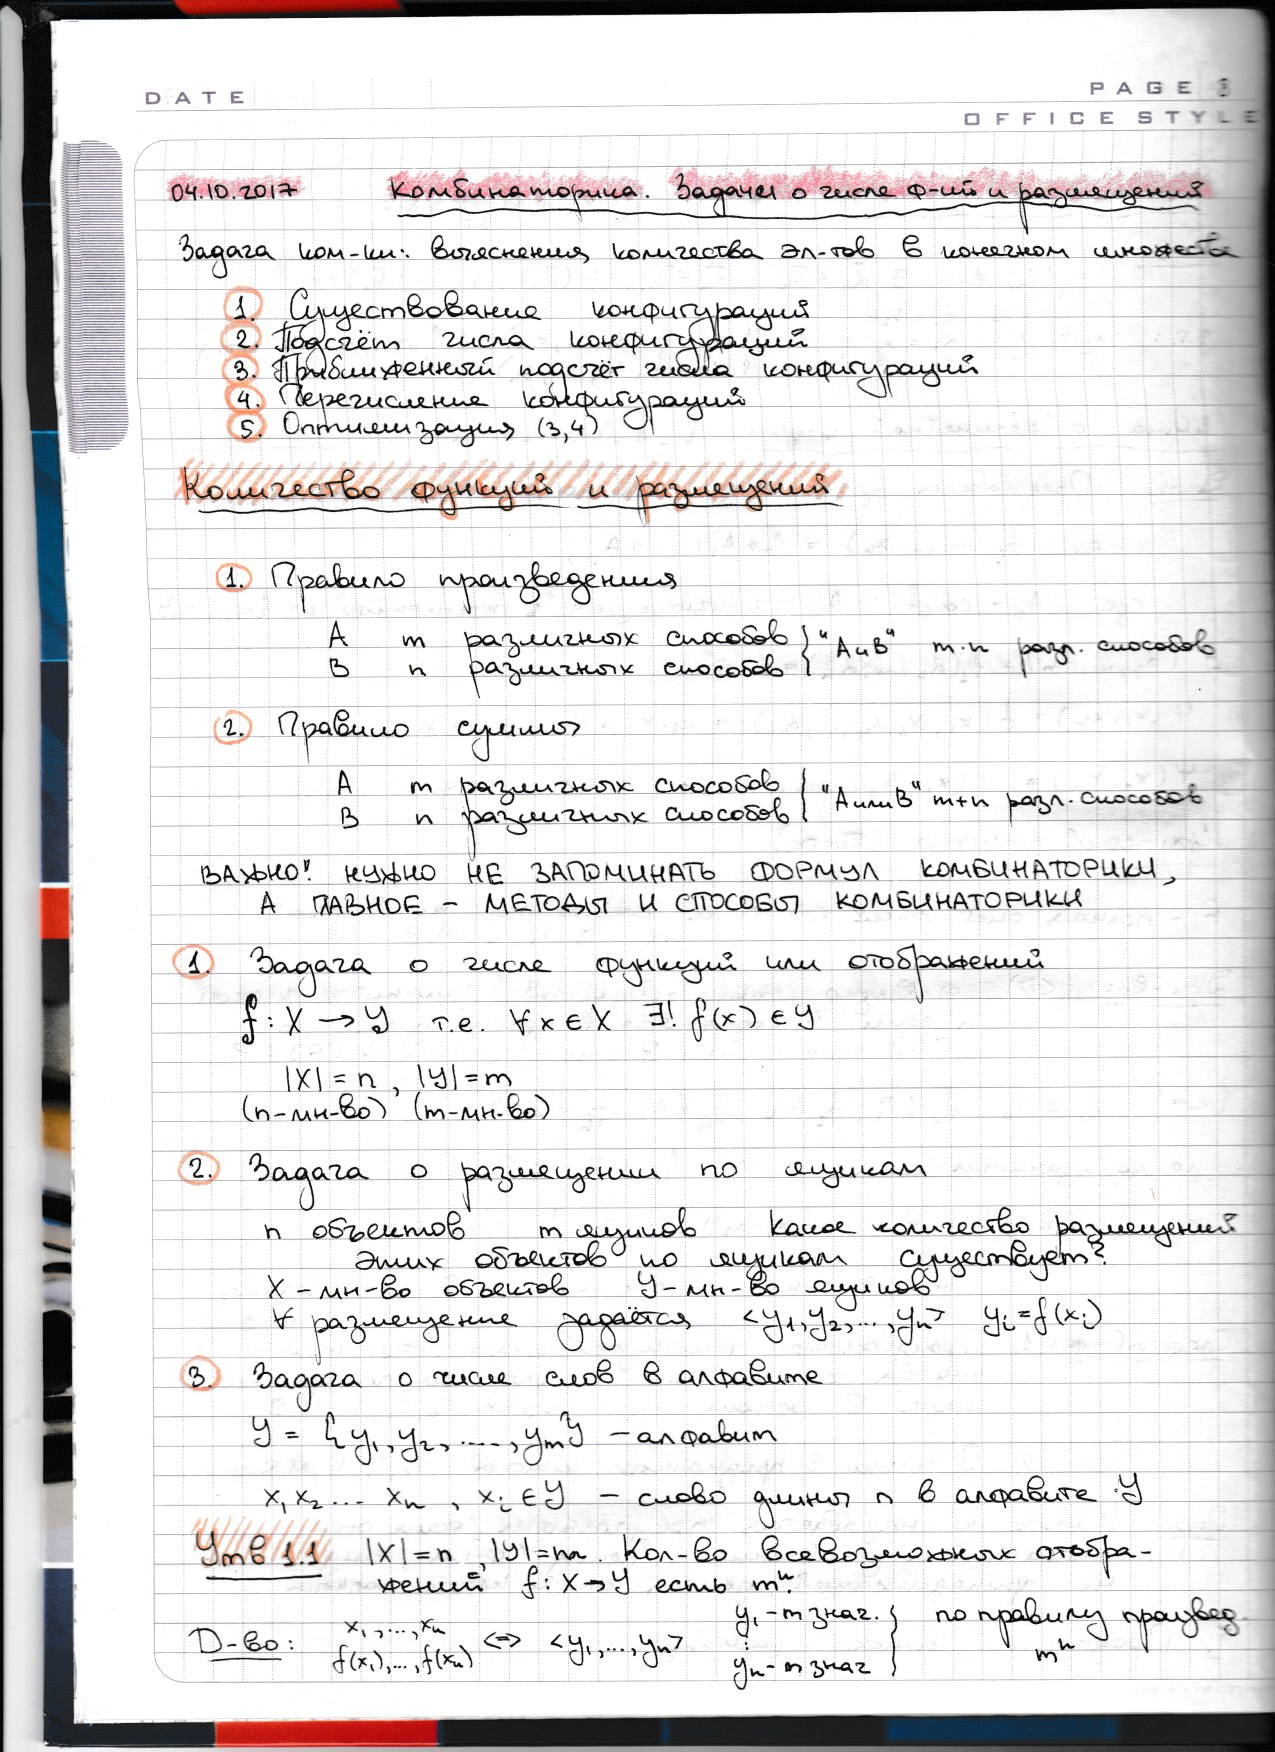 DATE
PAGE
OFFICE STYLE
04.10.2017 Комбинаторика. Задачи о числе ф-ий и размещений
Задача ком-ки: выяснения количества эл-тов в конечном множестве
1. Существование конфигураций
2. Подсчёт числа конфигураций
3. Приближенный подсчёт числа конфигураций
4. Перечисление конфигураций
5. Оптимизация (3,4)
Количество функций и размещений
1. Правило произведения
A m различных способов } "A и B" m·n разл. способов
B n различных способов
2. Правило суммы
A m различных способов } "A или B" m+n разл. способов
B n различных способов
ВАЖНО! НУЖНО НЕ ЗАПОМИНАТЬ ФОРМУЛ КОМБИНАТОРИКИ,
А ГЛАВНОЕ – МЕТОДЫ И СПОСОБЫ КОМБИНАТОРИКИ
1. Задача о числе функций или отображений
f: X → Y т.е. ∀x∈X ∃! f(x)∈Y
|X|=n, |Y|=m
(n-мн-во) (m-мн-во)
2. Задача о размещении по ящикам
n объектов m ящиков Какое количество размещений
этих объектов по ящикам существует?
X – мн-во объектов Y – мн-во ящиков
∀ размещение задаётся <y₁,y₂,...,yₙ> yᵢ=f(xᵢ)
3. Задача о числе слов в алфавите
Y = {y₁,y₂,....,yₘ} – алфавит
x₁x₂... xₙ, xᵢ∈Y – слово длины n в алфавите Y
Утв 1.1 |X|=n, |Y|=m. Кол-во всевозможных отобра-
жений f: X→Y есть mⁿ.
Д-во: x₁,...,xₙ f(x₁),...,f(xₙ) <=> <y₁,...,yₙ> y₁ – m знач. ⋮ yₙ – m знач } по правилу произвед. mⁿ